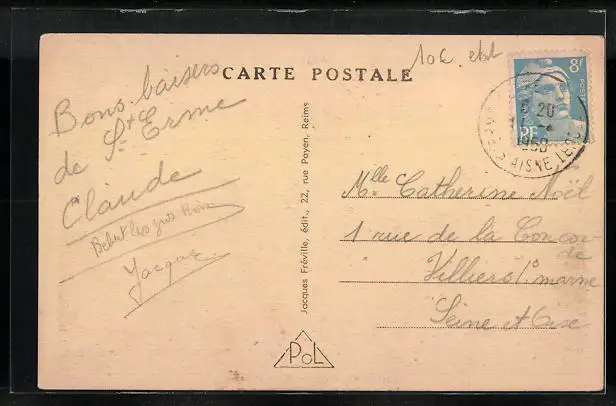 CARTE POSTALE
10€
8f
POSTES
RF
20
1950
AISNE
Bons baisers
de St Erme
Claude
Jacque
Jacques Fréville, édit., 22, rue Payen, Reims
Mlle Catherine Noël
1 rue de la Concor
de
Villiers s/ marne
Seine et Oise
POL